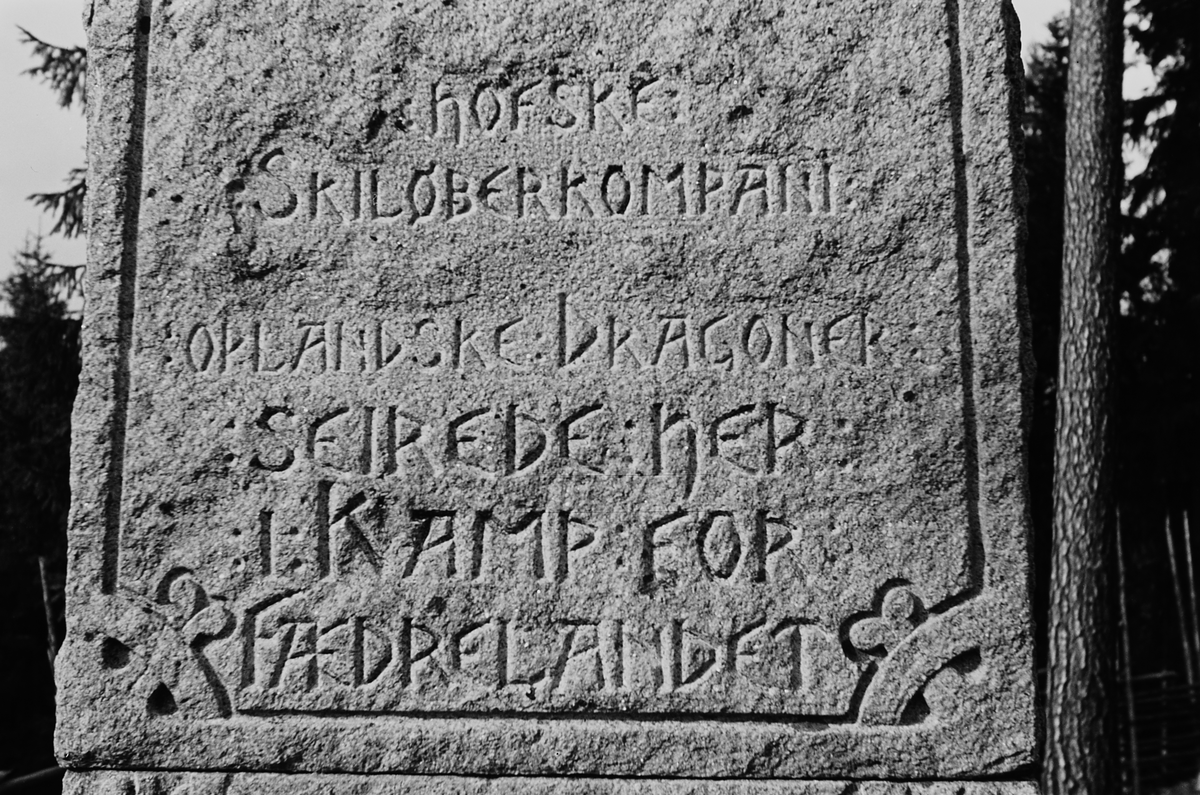 HOFSKE
SKILØBERKOMPANI:
:OPLANDSKE:DRAGONER:
:SEIREDE:HER:
:I:KAMP:FOR
FÆDRELANDET